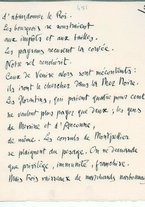 d'abandonner le Roi.
Les bourgeois se soustraient
aux impôts et aux tailles.
Les paysans refusent la corvée.
Notre sel renchérit.
Ceux de Venise alors sont mécontents :
ils vont le chercher dans la Mer Noire.
Les Florentins, qui paient quatre pour cent
ne veulent plus partir que deux, les gens
de Messine et d'Ancône,
de même. Les consuls de Montpellier
se plaignent du passage. On ne demande
que privilège, immunité, franchise.
Mais vos vaisseaux de marchands narbonnais